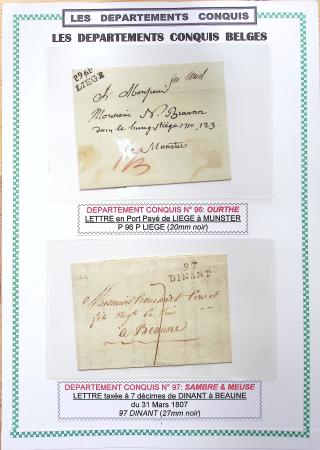 LES DEPARTEMENTS CONQUIS
LES DEPARTEMENTS CONQUIS BELGES
P96P
LIEGE
A Monsieur
Monsieur N. Braun
dans le
no. 123
a Munster
DEPARTEMENT CONQUIS N° 96: OURTHE
LETTRE en Port Payé de LIEGE à MUNSTER
P 96 P LIEGE (20mm noir)
97
DINANT
Messieurs Bouchard Pere et
fils Negts
7
a Beaune
DEPARTEMENT CONQUIS N° 97: SAMBRE & MEUSE
LETTRE taxée à 7 décimes de DINANT à BEAUNE
du 31 Mars 1807
97 DINANT (27mm noir)